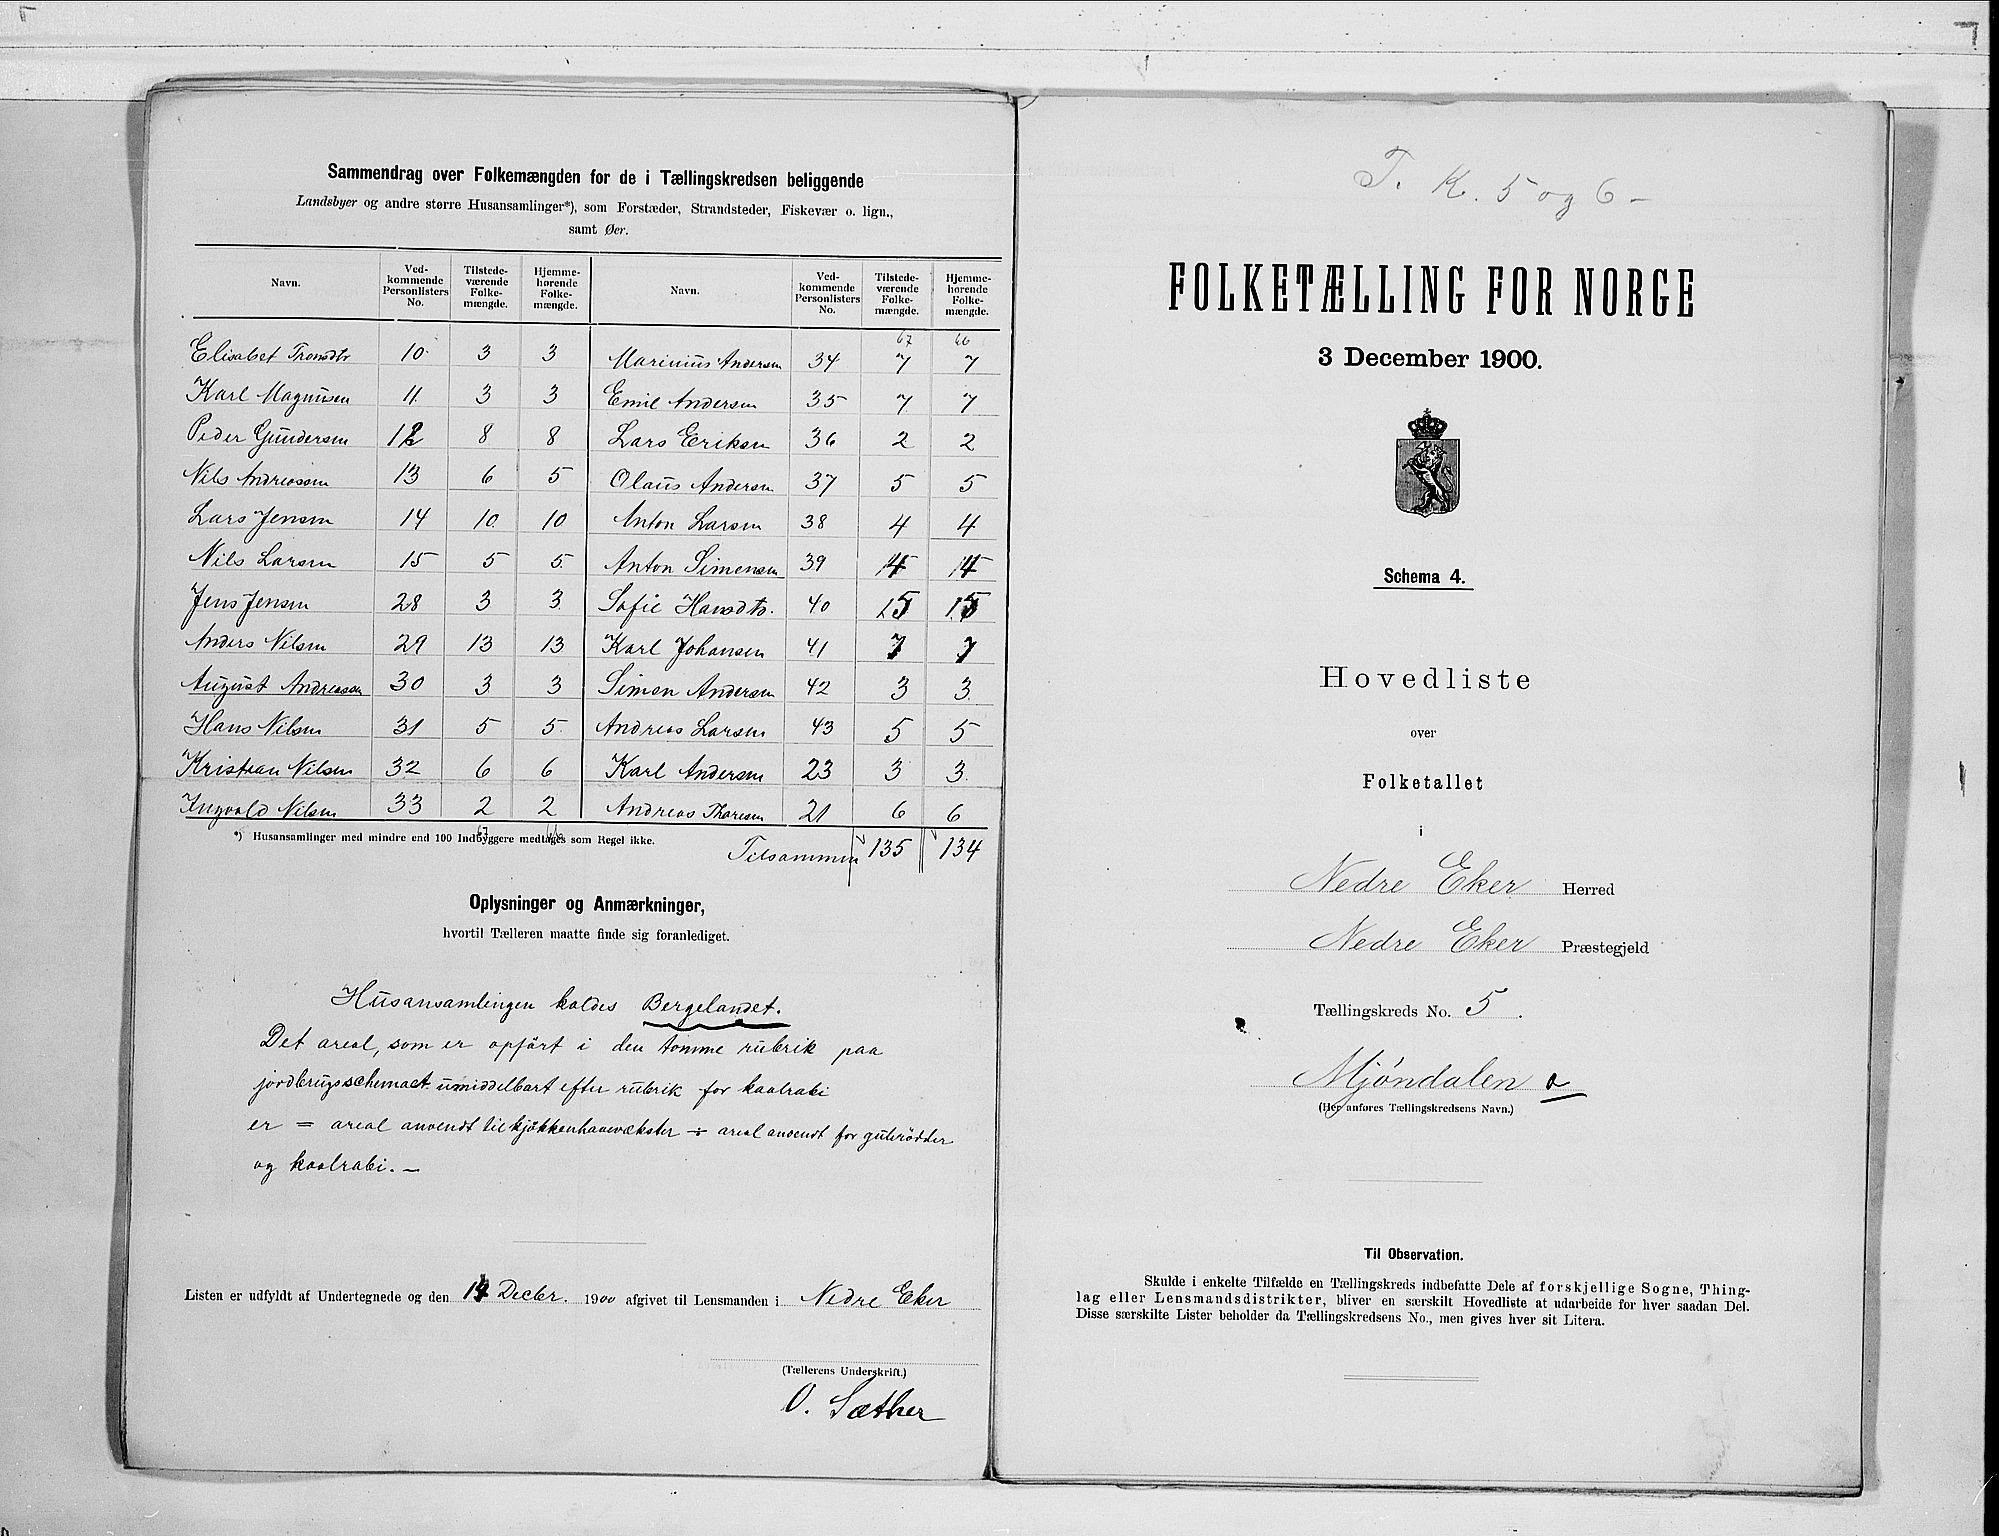 Sammendrag over Folkemængden for de i Tællingskredsen beliggende
Landsbyer og andre større Husansamlinger*), som Forstæder, Strandsteder, Fiskevær o. lign.,
samt Øer.
Navn. Ved-kommende Personlisters No. Tilstede-værende Folke-mængde. Hjemme-hørende Folke-mængde. Navn. Ved-kommende Personlisters No. Tilstede-værende Folke-mængde. Hjemme-hørende Folke-mængde.
67 66
Elisabet Tronsdtr 10 3 3 Marinius Andersen 34 7 7
Karl Magnusen 11 3 3 Emil Andersen 35 7 7
Peder Gundersen 12 8 8 Lars Eriksen 36 2 2
Nils Andreassen 13 6 5 Olaus Andersen 37 5 5
Lars Jensen 14 10 10 Anton Larsen 38 4 4
Nils Larsen 15 5 5 Anton Simensen 39 14 14
Jens Jensen 28 3 3 Sofie Hansdtr. 40 5 5
Anders Nilsen 29 13 13 Karl Johansen 41 7 7
August Andreassen 30 3 3 Simen Andersen 42 3 3
Hans Nilsen 31 5 5 Andreas Larsen 43 5 5
Kristian Nilsen 32 6 6 Karl Andersen 23 3 3
Ingvald Nilsen 33 2 2 Andreas Thoresen 21 6 6
67 66
*) Husansamlinger med mindre end 100 Indbyggere medtages som Regel ikke.
Tilsammen 135 134
Oplysninger og Anmærkninger,
hvortil Tælleren maatte finde sig foranlediget.
Husansamlingen kaldes Bergelandet.
Det areal, som er opført i den tomme rubrik paa
jordbrugsschemaet umiddelbart efter rubrik for kaalrabi
er = areal anvendt til kjøkkenhavevækster ÷ areal anvendt for gulerødder
og kaalrabi. —
Listen er udfyldt af Undertegnede og den 14 Decbr. 1900 afgivet til Lensmanden i Nedre Eker
(Tællerens Underskrift.)
O. Sæther
T. K. 5 og 6 –
FOLKETÆLLING FOR NORGE
3 December 1900.
Schema 4.
Hovedliste
over
Folketallet
i
Nedre Eker Herred
Nedre Eker Præstegjeld
Tællingskreds No. 5.
Mjøndalen a
(Her anføres Tællingskredsens Navn.)
Til Observation.
Skulde i enkelte Tilfælde en Tællingskreds indbefatte Dele af forskjellige Sogne, Thing-
lag eller Lensmandsdistrikter, bliver en særskilt Hovedliste at udarbeide for hver saadan Del.
Disse særskilte Lister beholder da Tællingskredsens No., men gives hver sit Litera.